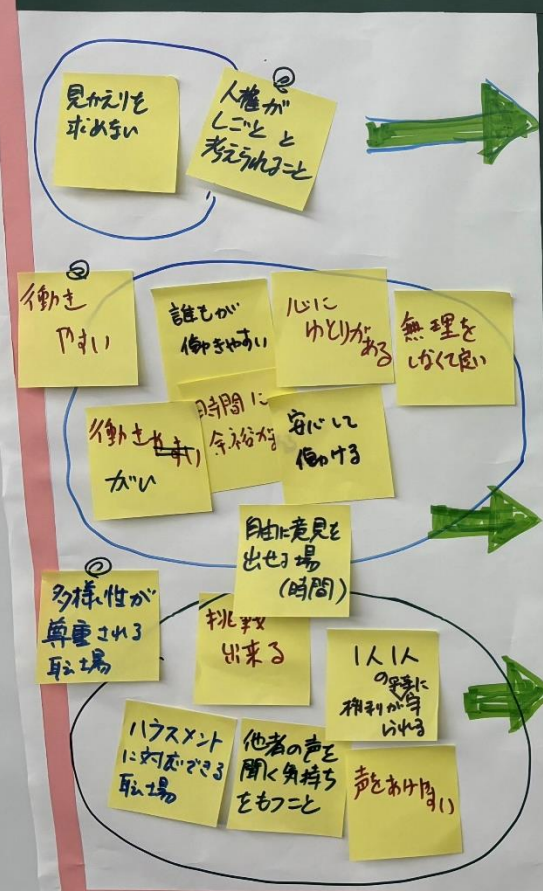 見かえりを
求めない
人権が
しごとと
考えられること
働き
やすい
誰もが
働きやすい
心に
ゆとりがある
無理を
しなくて良い
働き
がい
時間に
余裕がある
安心して
働ける
自由に意見を
出せる場
(時間)
多様性が
尊重される
職場
挑戦
出来る
1人1人
の
権利が守
られる
ハラスメント
に対応できる
職場
他者の声を
聞く気持ち
をもつこと
声をあげやすい